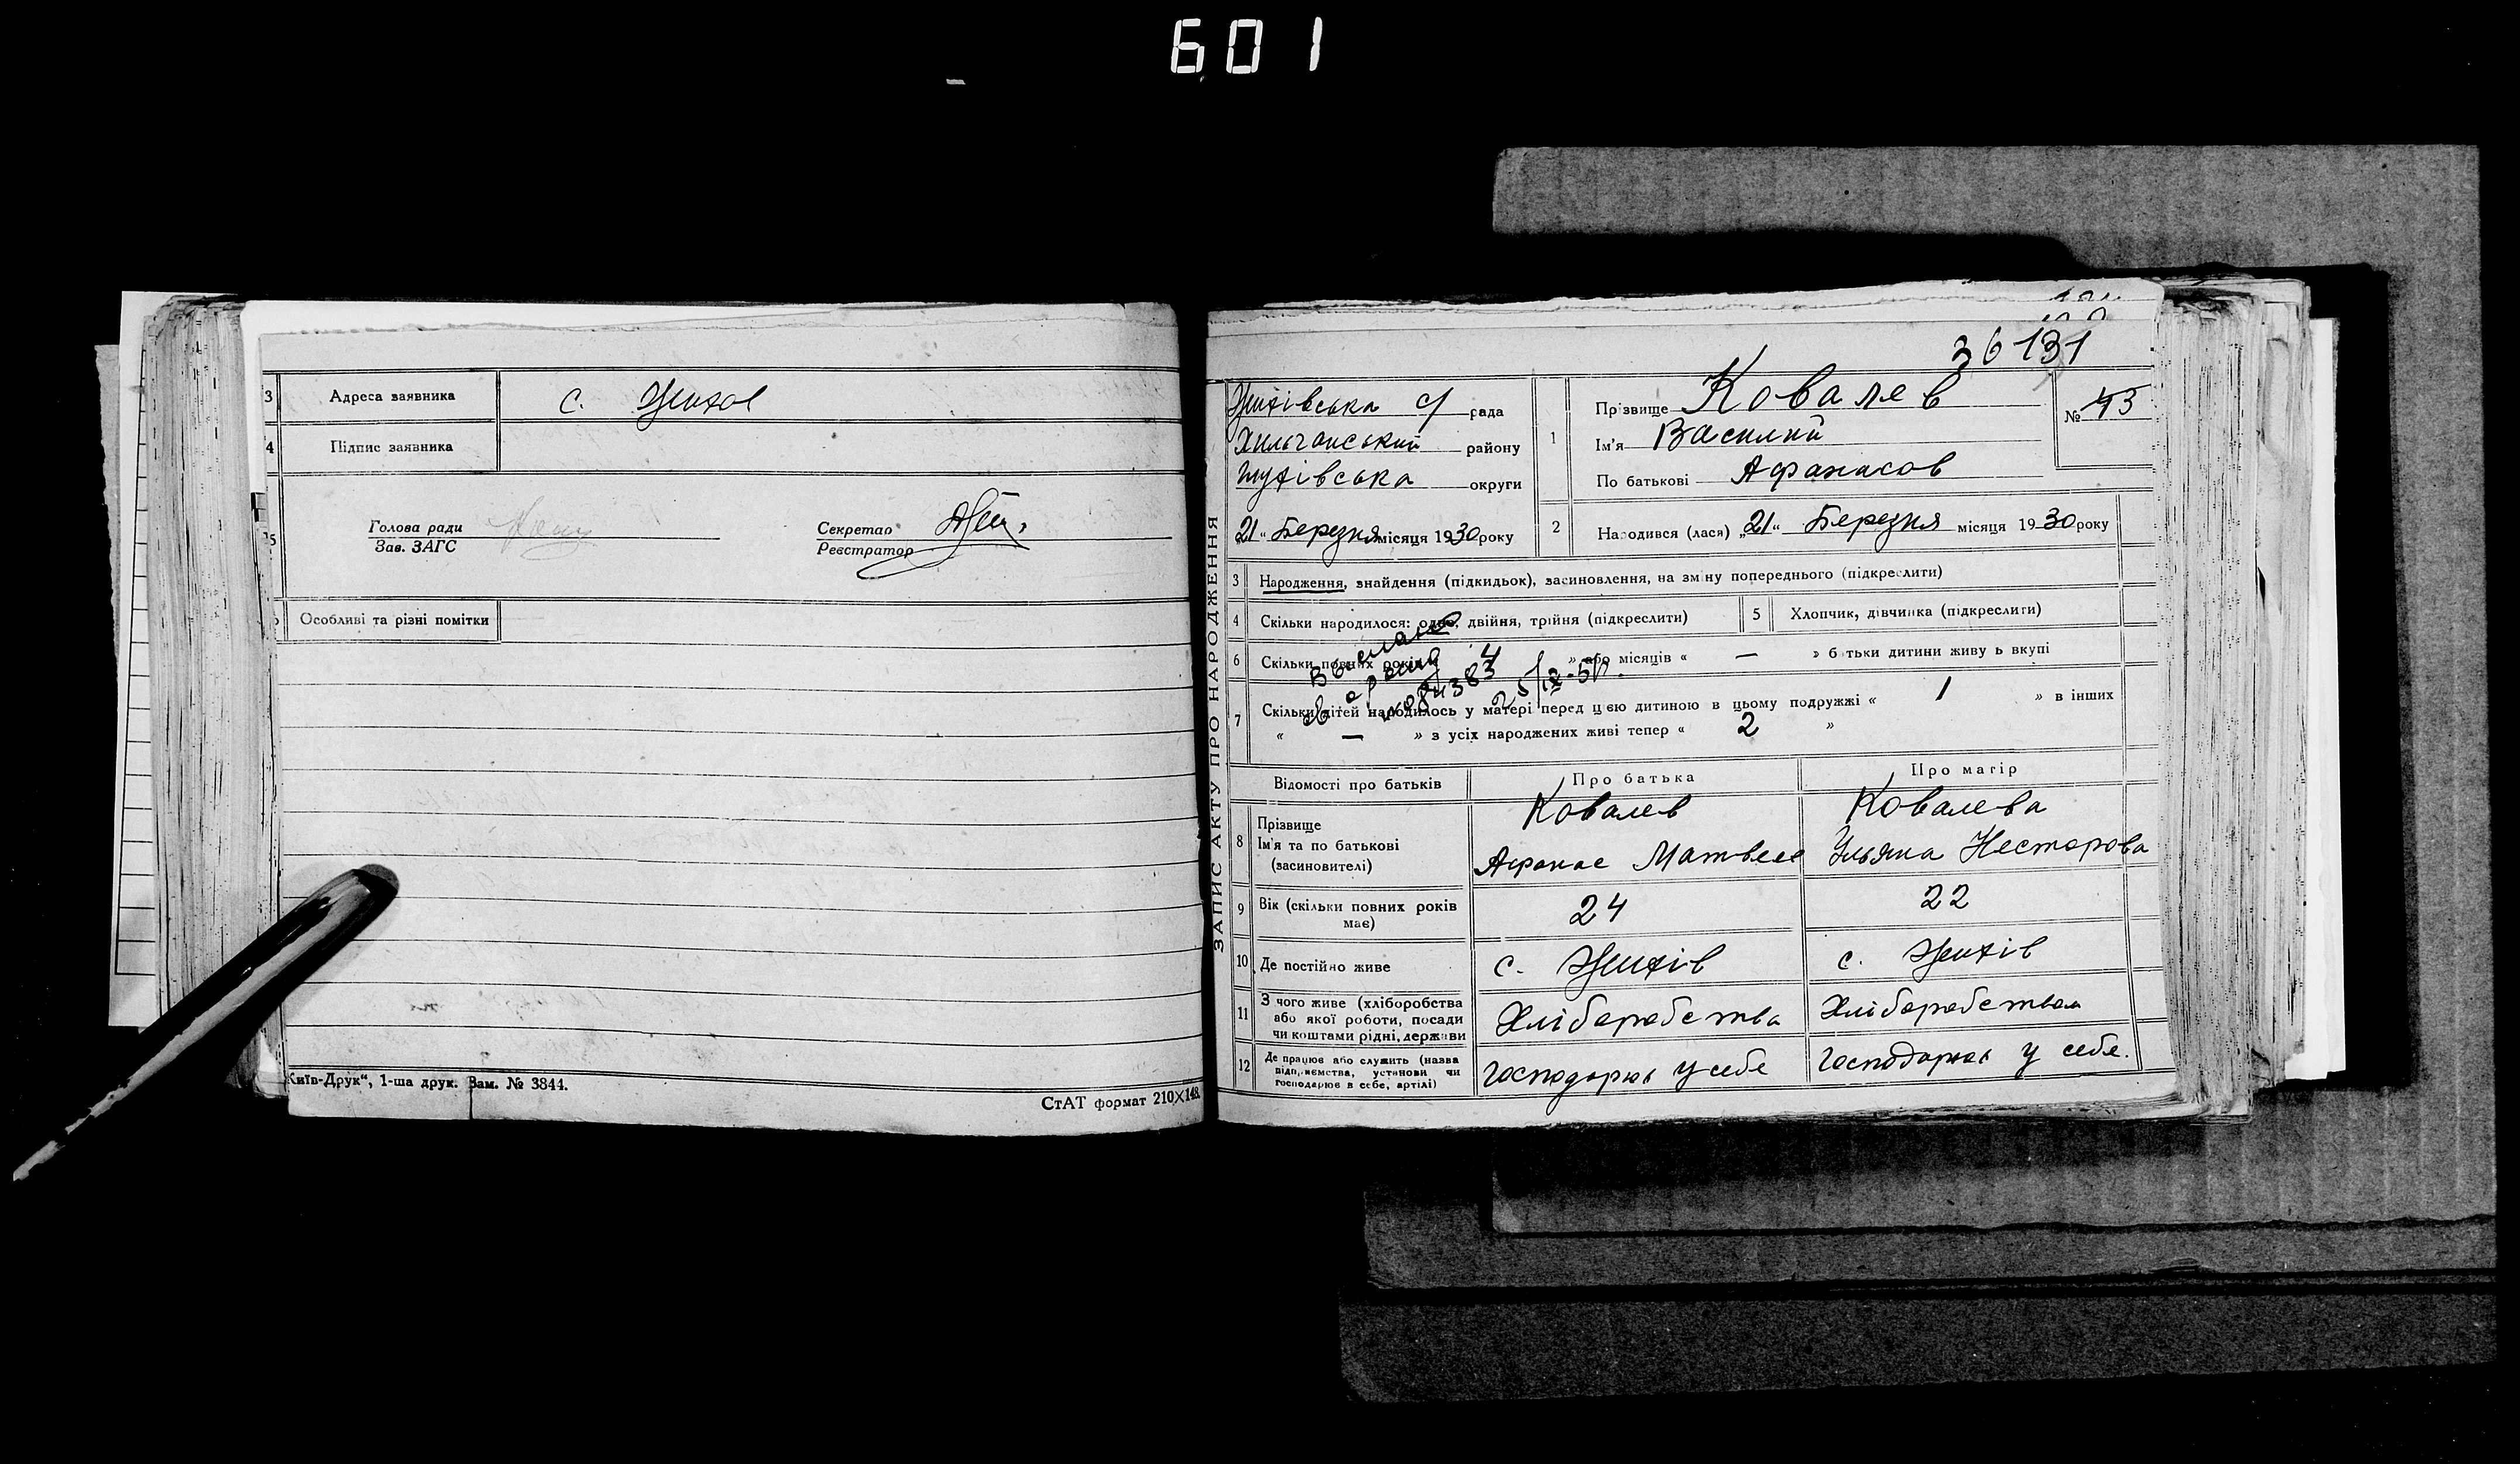 601
3 Адреса заявника с. Жихов
4 Підпис заявника
Голова ради
Зав. ЗАГС
Секретар
Реєстратор
Особливі та різні помітки
Київ-Друк“, 1-ша друк. Зам. № 3844.
СтАТ формат 210×148.
36 131
ЗАПИС АКТУ ПРО НАРОДЖЕННЯ
Жихівська с/ рада
Хильчанський району
округи
21 “ Березня місяця 1930 року
1 Прізвище Ковалев
Ім'я Василий
По батькові Афанасов
№ 43
2 Народився (лася) „21“ Березня місяця 1930 року
3 Народження, знайдення (підкидьок), засиновлення, на зміну попереднього (підкреслити)
4 Скільки народилося: одно, двійня, трійня (підкреслити)
5 Хлопчик, дівчинка (підкреслити)
6 Скільки повних років « 4 » або місяців « — » батьки дитини живуть вкупі
7 Скільки дітей народилось у матері перед цією дитиною в цьому подружжі « 1 » в інших
« — » з усіх народжених живі тепер « 2 »
Відомості про батьків Про батька Про матір
8 Прізвище
Ім'я та по батькові
(засиновителі)
Ковалев
Афанас Матвеев
Ковалева
Ульяна Несторова
9 Вік (скільки повних років має) 24 22
10 Де постійно живе с. Жихів с. Жихів
11 З чого живе (хліборобства
або якої роботи, посади
чи коштами рідні, держави
Хліборобства Хліборобством
12 Де працює або служить (назва
підприємства, установи чи
господарює в себе, артілі)
Господарює у себе Господарює у себе.